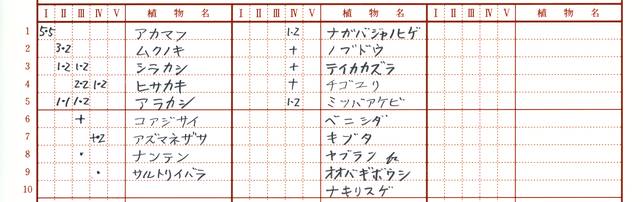 I II III IV V 植物名 I II III IV V 植物名 I II III IV V 植物名
1 5·5 アカマツ 1·2 ナガバジャノヒゲ
2 3·2 ムクノキ + ノブドウ
3 1·2 1·2 シラカシ + テイカカズラ
4 2·2 1·2 ヒサカキ + チゴユリ
5 1·1 1·2 アラカシ 1·2 ミツバアケビ
6 + コアジサイ ベニシダ
7 +·2 アズマネザサ キヅタ
8 · ナンテン ヤブラン
9 · サルトリイバラ オオバギボウシ
10 ナキリスゲ